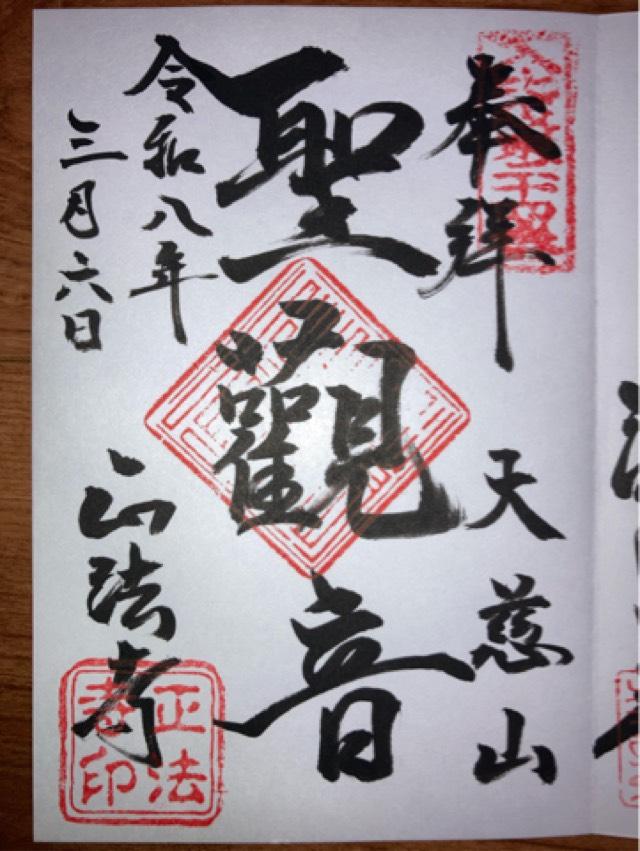 奉拝
天慈山
聖觀音
令和八年
三月六日
正法寺
正法
寺印